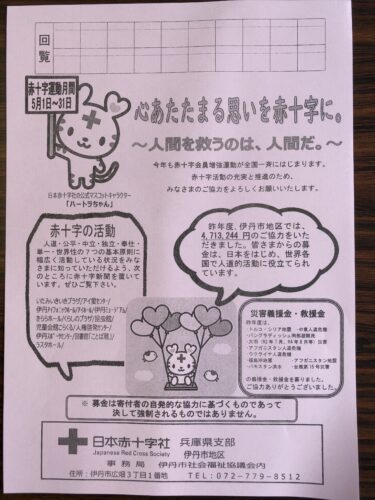 回覧
赤十字運動月間
5月1日~31日
心あたたまる思いを赤十字に。
~人間を救うのは、人間だ。~
今年も赤十字会員増強運動が全国一斉にはじまります。
赤十字活動の充実と推進のため、
みなさまのご協力をよろしくお願いいたします。
日本赤十字社の公式マスコットキャラクター
「ハートラちゃん」
赤十字の活動
人道・公平・中立・独立・奉仕・
単一・世界性の7つの基本原則に
幅広く活動している状況をみなさ
まに知っていただけるよう、次
のところに赤十字新聞を置いて
います。ぜひご覧下さい。
児童会館こらくる/人権啓発センター
ラスタホール/
昨年度、伊丹市地区では、
4,713,244 円のご協力をいた
だきました。皆さまからの募
金は、日本をはじめ、世界各
国で人道的活動に役立てられ
ています。
災害義援金・救援金
昨年度は、
・トルコ・シリア地震
・中東人道危機
・アフガニスタン人道危機
・ウクライナ人道危機
・アフガニスタン地震
・パキスタン洪水
・台風第15号災害
の義援金・救援金を募りました。
ご協力ありがとうございました。
※ 募金は寄付者の自発的な協力に基づくものであって
決して強制されるものではありません。
日本赤十字社 兵庫県支部
Japanese Red Cross Society 伊丹市地区
事務局 伊丹市社会福祉協議会内
住所:伊丹市広畑3丁目1番地 TEL:072-779-8512